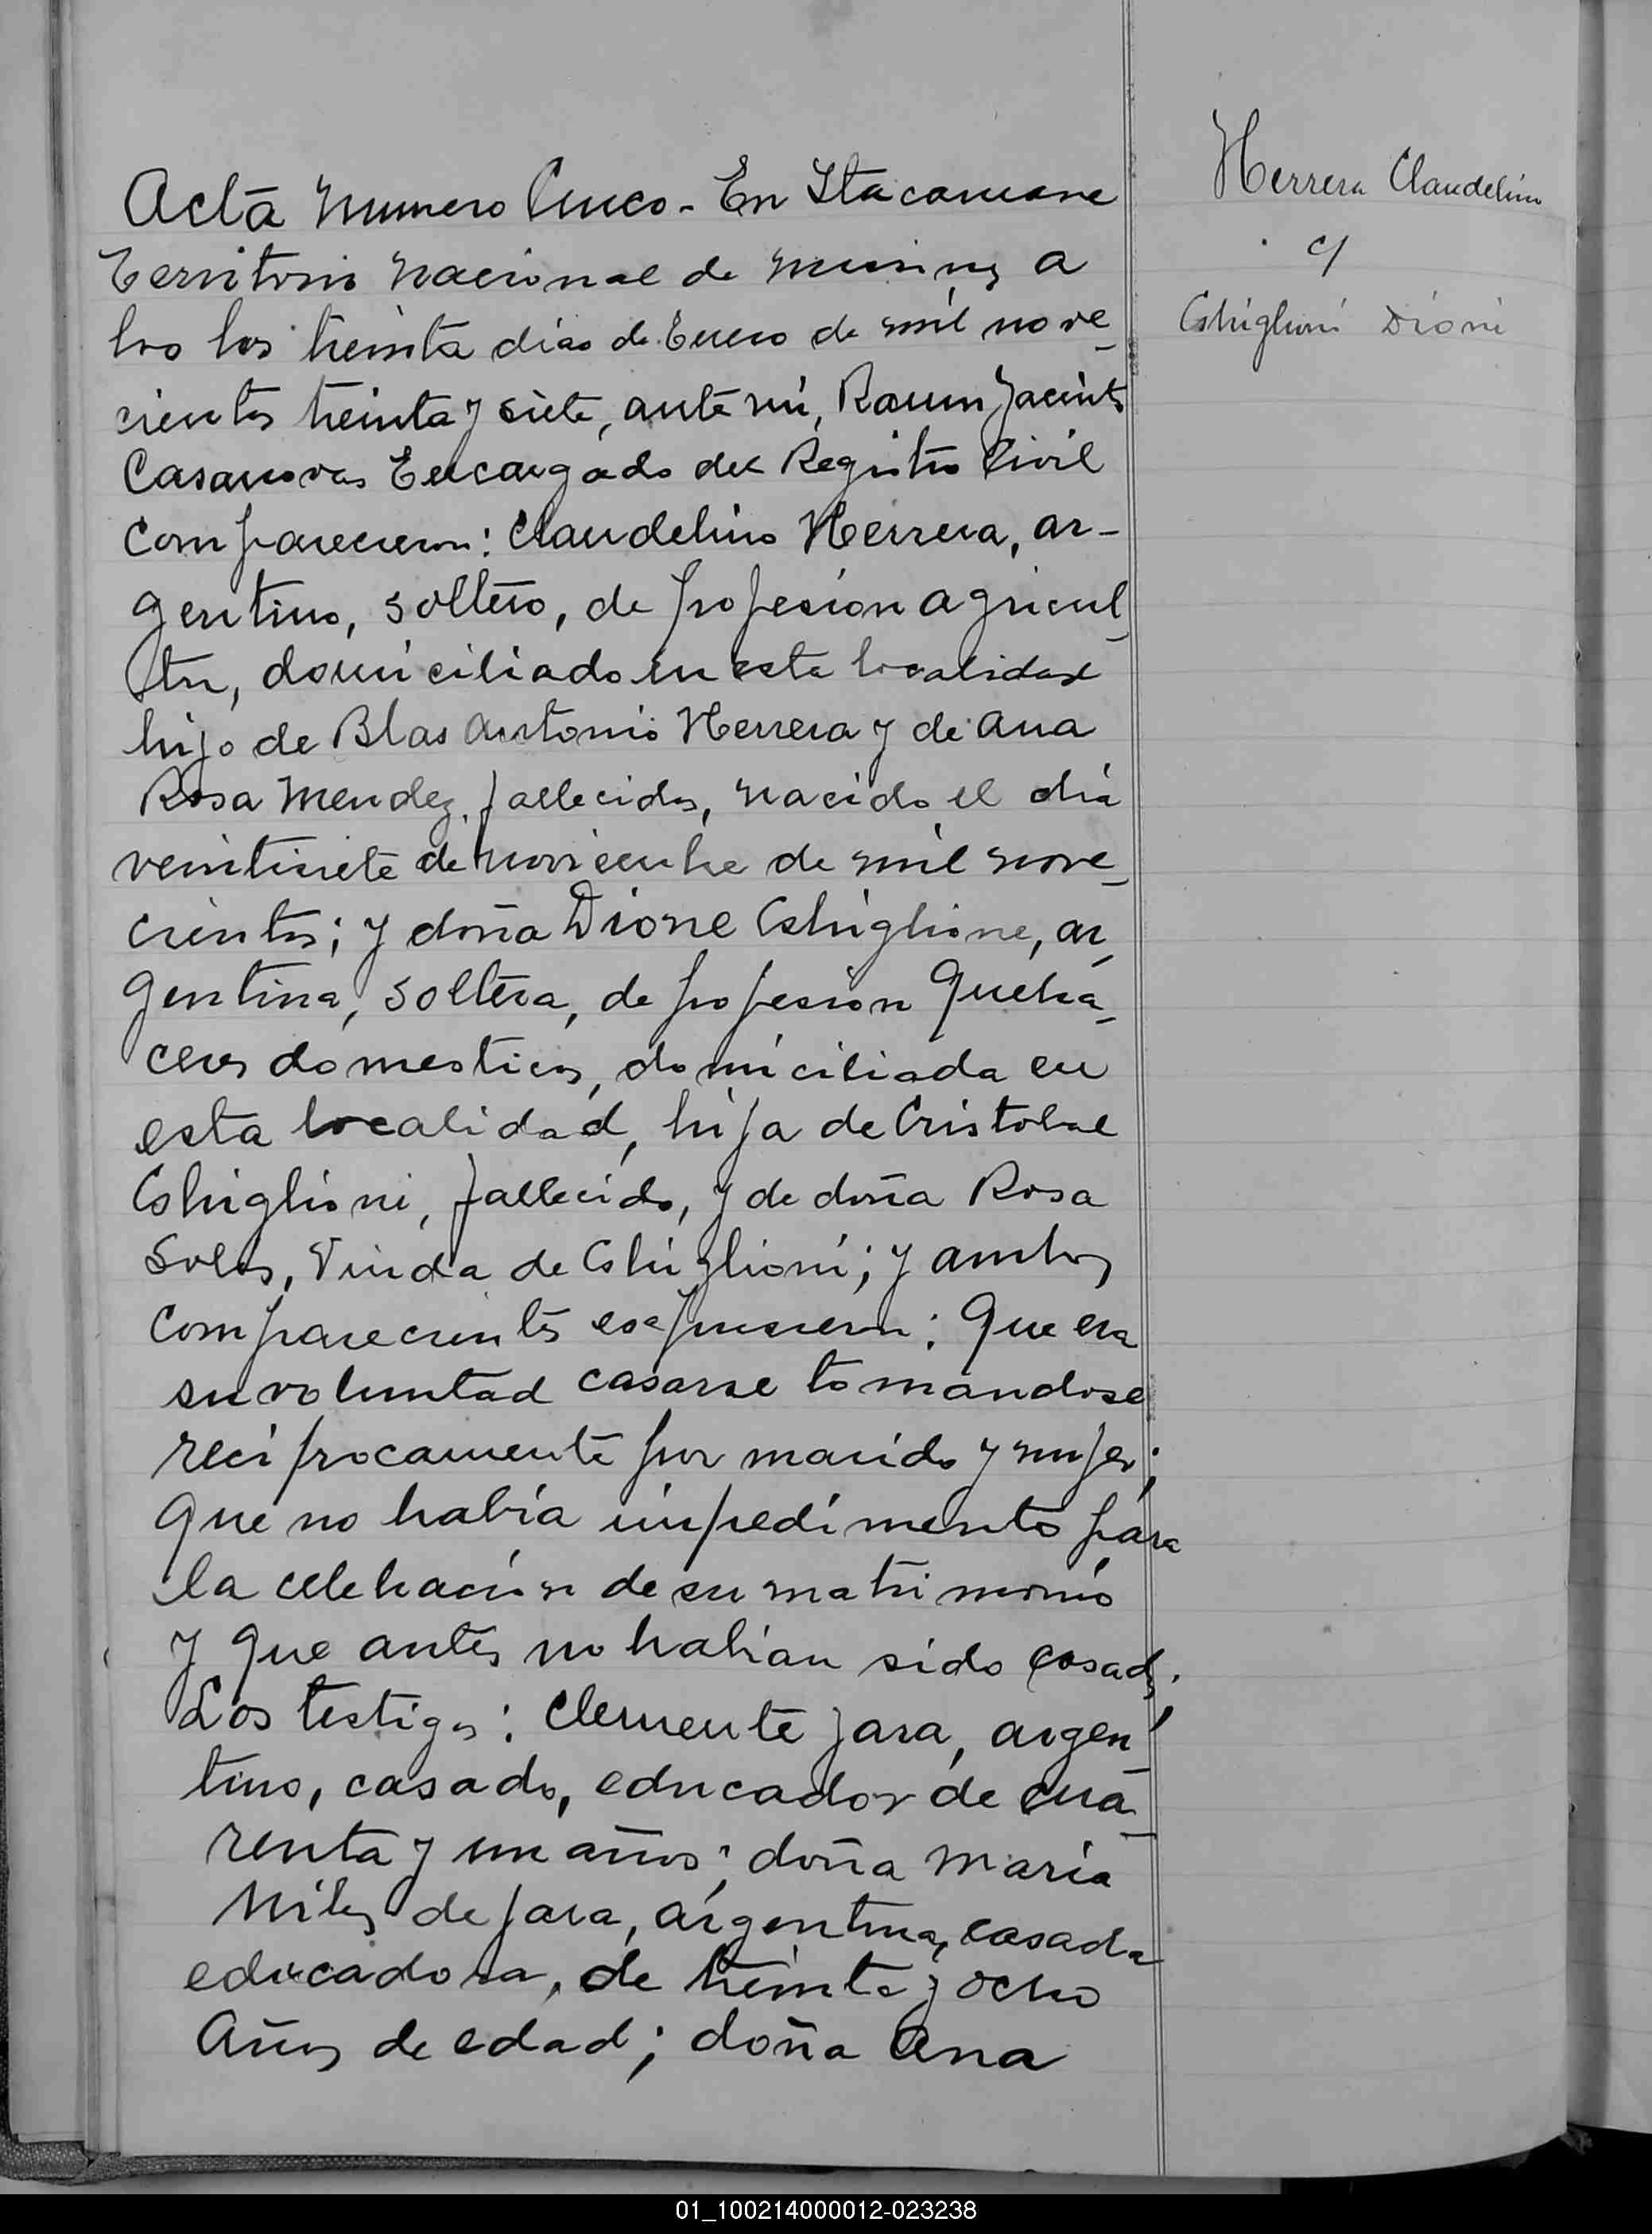 Acta Numero Cinco - En Itacaruare
Territorio Nacional de Misiones a
los los treinta dias de Enero de mil nove_
cientos treinta y siete, ante mi, Ramon Jacinto
Casanovas Encargado del Registro Civil
Comparecieron: Claudelino Herrera, ar-
gentino, soltero, de profesion agricul_
tor, domiciliado en esta localidad
hijo de Blas Antonio Herrera y de Ana
Rosa Mendez, fallecidos, nacido el dia
veintisiete de noviembre de mil nove_
cientos; y doña Dione Ghiglione, ar_
gentina, soltera, de profesion Queha_
ceres domesticos, domiciliada en
esta localidad, hija de Cristobal
Ghiglioni, fallecido, y de doña Rosa
Viuda de Ghiglioni; y ambos
Comparecientes expusieron: Que era
su voluntad casarse tomandose
reciprocamente por marido y mujer;
Que no habia impedimento para
la celebracion de su matrimonio
y que antes no habian sido casados;
Los testigos: Clemente Jara, argen
tino, casado, educador de cua_
renta y un años; doña Maria
de Jara, argentina, casada
educadora, de treinta y ocho
Años de edad; doña Ana
Herrera Claudelino
c/
Ghiglioni Dioni
01_100214000012-023238